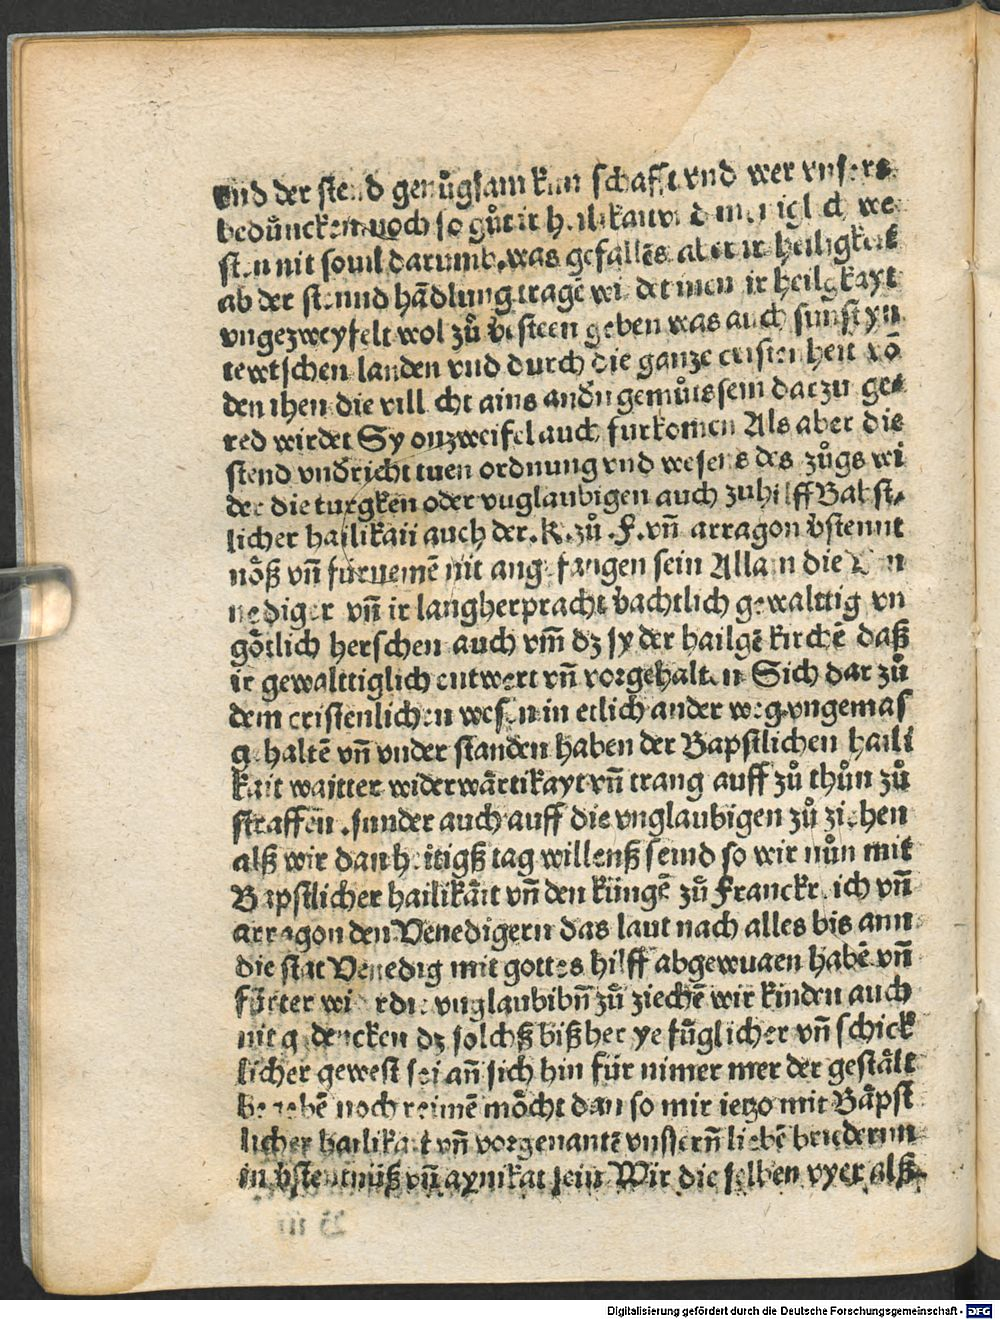 vnd der stend genůgsam kun schafft vnd wer vnsers
bedůncken noch so gůt ir we
sten nit souil darumb was gefallēs aber ir heiligkeit
ab der stennd hādlung tragē ir heilgkayt
vngezweyfelt wol zů geben was auch sunst yn
tewtschen landen vnd durch die ganze cristenheit võ
den ihen die villicht ains andn gemůts sein dar zu ge⸗
red wirdet Sy onzweifel auch furkomen Als aber die
stend vndricht tuen ordnung vnd wesens des zůgs wi
der die turgken oder vuglaubigen auch zuhilff Babst⸗
licher hailikaii auch der .K. zů .F. vñ arragon vstennt
nöß vñ fürnemē nit angefangen sein Allain die Ven
nediger vñ ir langherpracht gewalttig vn
götlich herschen auch vm̄ dz sy der hailgē kirchē daß
ir gewalttiglich entwert vñ vorgehalten Sich dar zů
dem cristenlichen wesen in etlich ander weg vngemas
gehaltē vñ vnder standen haben der Bapstlichen haili
kait waitter widerwärtikayt vñ trang auff zů thůn zů
straffen .sunder auch auff die vnglaubigen zů ziehen
alß wir dan heitigß tag willenß seind so wir nůn mit
Bapstlicher hailikāit vñ den küngē zů Franckreich vñ
arragon den Venedigern das laut nach alles bis ann
die stat Venedig mit gottes hilff abgewuaen habē vñ
fürter wider die vnglaubibñ zů ziechē wir kinden auch
nit gedencken dz solchß bißher ye füglicher vñ schick
licher gewest sei añ sich hin für nimer mer der gestält
begebē noch reimē möcht dan so mir ietzo mit Bäpst
licher hailikait vñ vorgenantē vnsserñ liebē briedernn
in vstentnüß vñ aynikat sein Wir die selben vyer alß
Digitalisierung gefördert durch die Deutsche Forschungsgemeinschaft - DFG